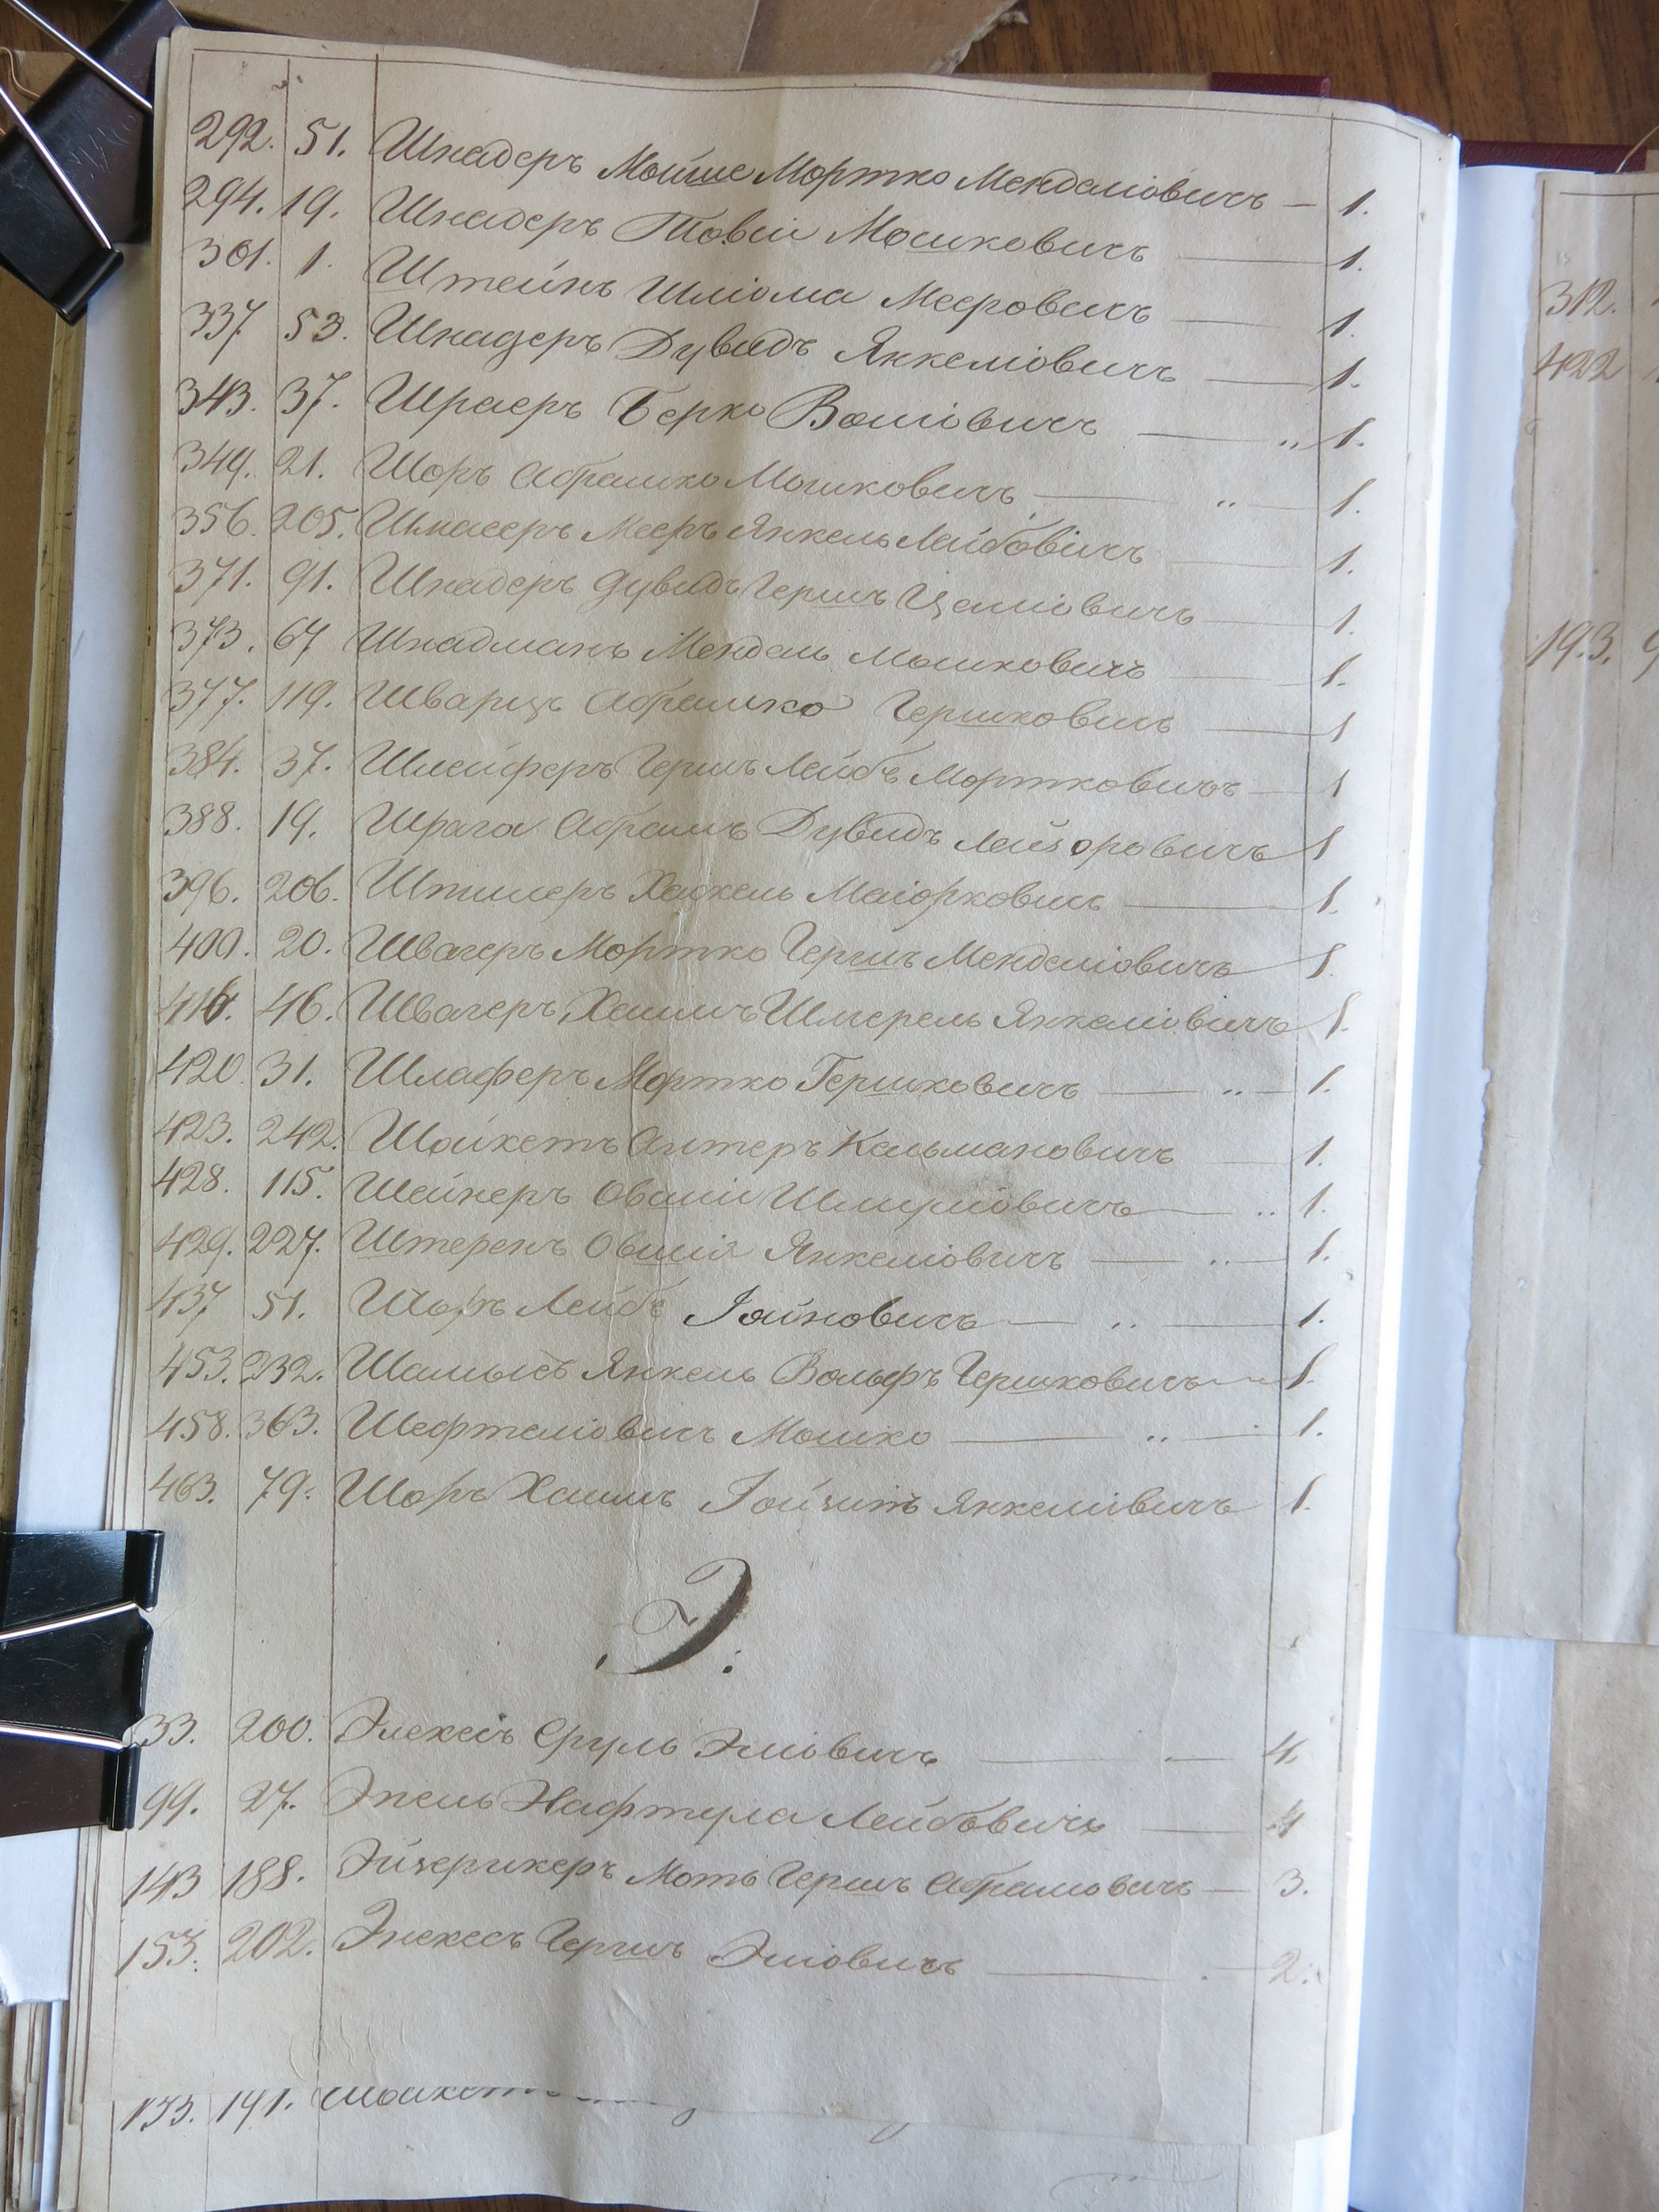 292. 51. Шнадеръ Мойше Мортко Менделіовичъ — 1.
294. 19. Шнадеръ Товій Мошковичъ — 1.
301. 1. Штейнъ Шліома Мееровичъ — 1.
337 53. Шнадеръ Дувидъ Янкеліовичъ — 1.
343. 37. Шраеръ Берко Воліовичъ — „ 1.
349. 21. Шоръ Абрашко Мошковичъ — „ 1.
356. 205. Шмаеръ Мееръ Янкель Лейбовичъ — 1.
371. 91. Шнадеръ Дувидъ Гершъ Цаліовичъ — 1.
373. 67 Шнадманъ Мендель Мошковичъ — 1.
377. 119. Шварцъ Абрашко Гершковичъ — 1
384. 37. Шлейферъ Гершъ Лейбъ Мортковичъ — 1
388. 19. Шрага Абрамъ Дувидъ Лейзоровичъ 1
396. 206. Шпилеръ Хаскель Маіорковичъ — 1.
400. 20. Швагеръ Мортко Гершъ Менделіовичъ 1.
416. 46. Швагеръ Хаимъ Шмерель Янкеліовичъ 1.
420 31. Шлаферъ Мортко Гершковичъ — „ — 1.
423. 242. Шойхетъ Алтеръ Кельмановичъ — 1.
428. 115. Шейнеръ Овшій Шмуліовичъ — „ 1.
429. 227. Штеренъ Овшія Янкеліовичъ — „ — 1.
437 51. Шоръ Лейбъ Іойновичъ — „ — 1.
453. 232. Шамысъ Янкель Вольфъ Гершковичъ — 1.
458. 363. Шефтеліовичъ Мошко — „ — 1.
463. 79. Шоръ Хаимъ Янкеліовичъ 1.
Э.
33. 200. Сруль Эліовичъ — 4.
99. 27. Эпель Нафтула Лейбовичъ — 4
143 188. Моть Гершъ Абрамовичъ — 3.
153. 202. Гершъ Эліовичъ — 2.
133. 141. Шойхетъ
312.
422
193. 9